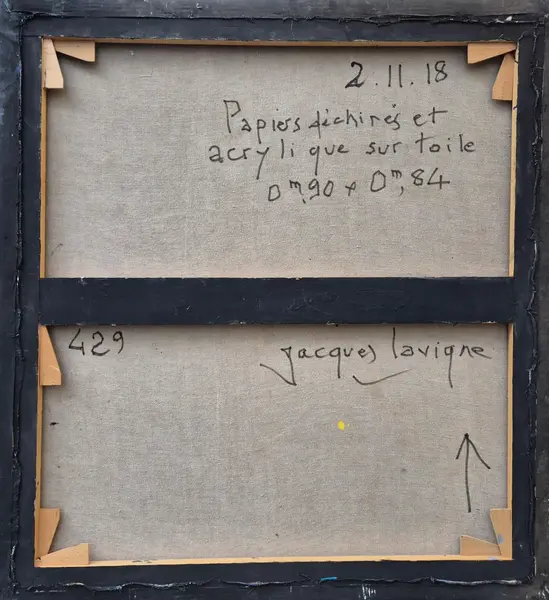 2.11.18
Papiers déchirés et
acrylique sur toile
0m,90 x 0m,84
429
Jacques Lavigne